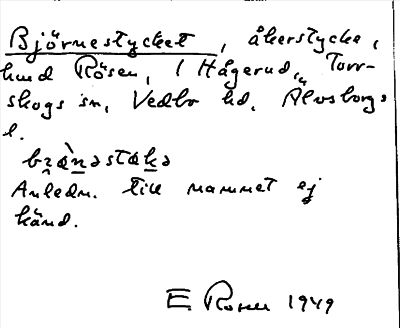 Björnestycket, åkerstycke i
hmd Rösen, 1 Hågerud, Torr-
skogs sn, Vedbo hd, Älvsborgs
l.
bzæ̀nəstəkə
Anledn. till namnet ej
känd.
E. Rosen 1949